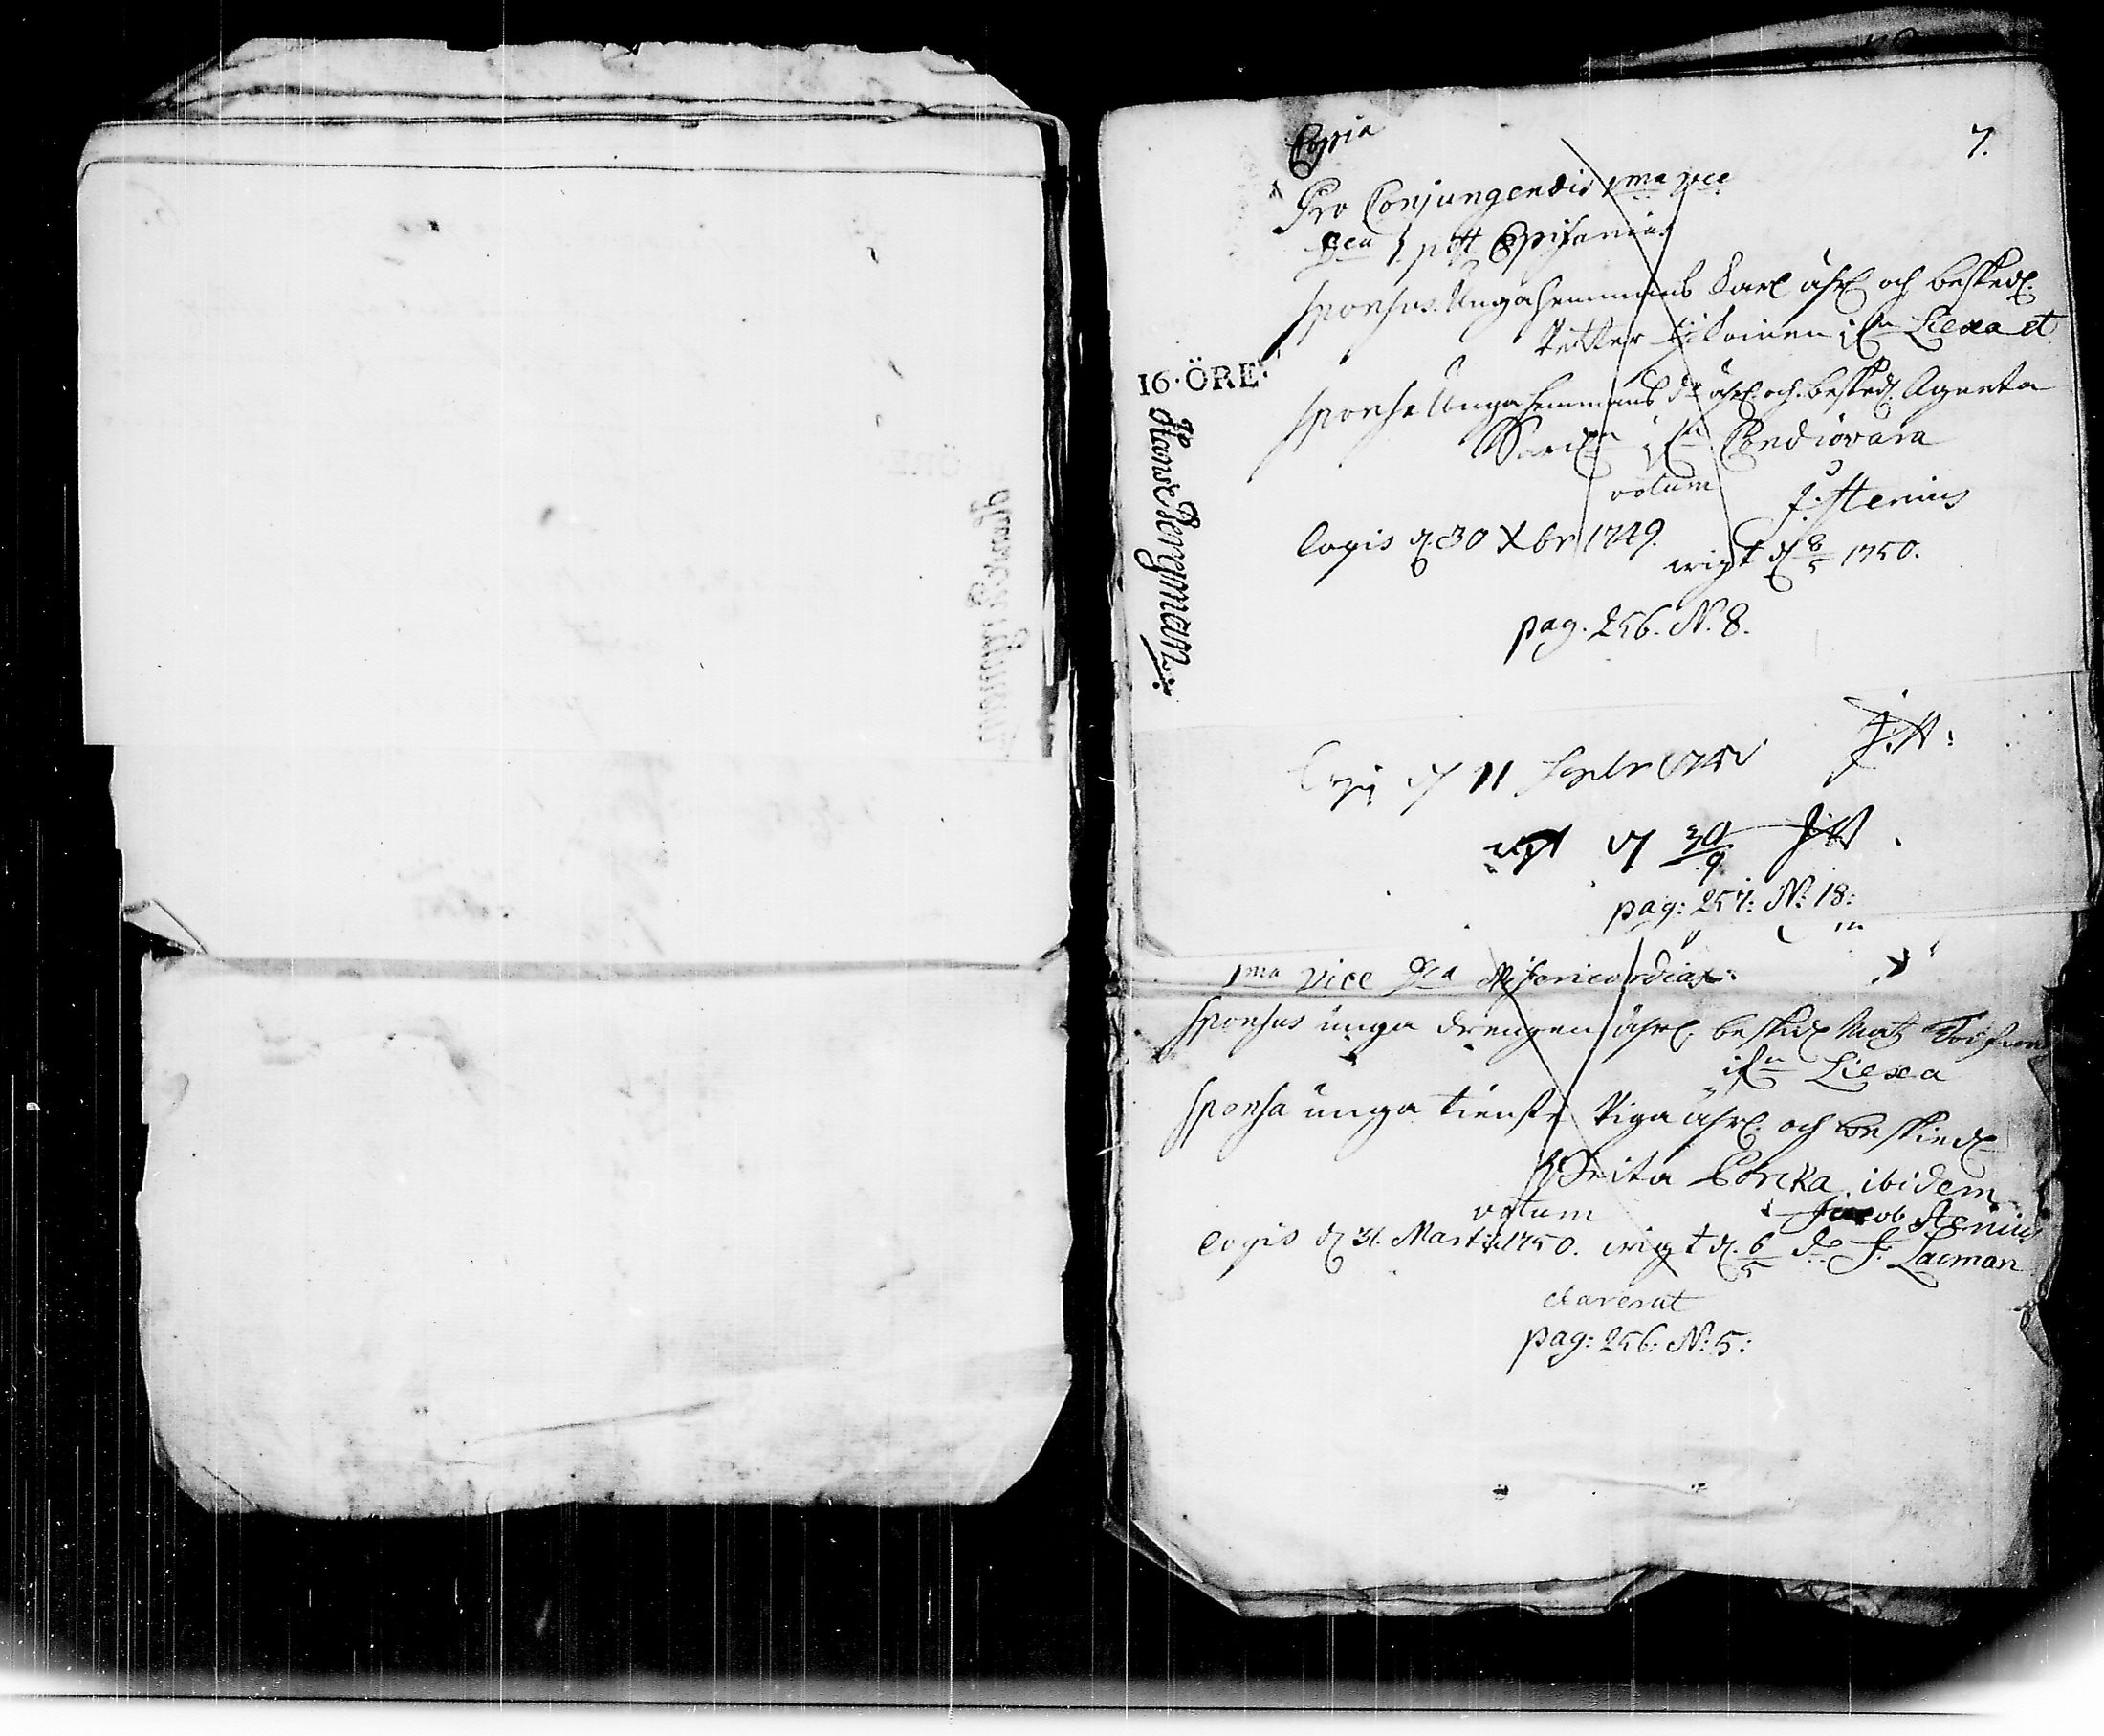 7.
Copia
Pro Conjungendis 1ma vice
Dca 1. pst Epifania:
Sponsus. Unga hemmans Karl ährl och beskedl.
Petter ifrn Liexa et
Sponsa Unga hemmans dr ährl. och. beskedl. Agneta
ifrn
votum J. Stenius
Copis d. 30 Xbr 1749.
wigt d 8/5 1750.
pag. 256. N. 8.
16·ÖRE·
Hans Bergman
d 11 J.St:
wigt d 30/9 J:St
pag: 257: N: 18:
1ma vice Dca Misericordias:
Sponsus unga drengen ährl. beskedl Matz
ifrn Liexa
Sponsa unga tienste Piga ährl. och beskiedl
Brita ibidem
votum Jacob Stenius
Copis d 31. Martii 1750. wigt d. 6/5 do J. Lacman
pag: 256: N: 5: